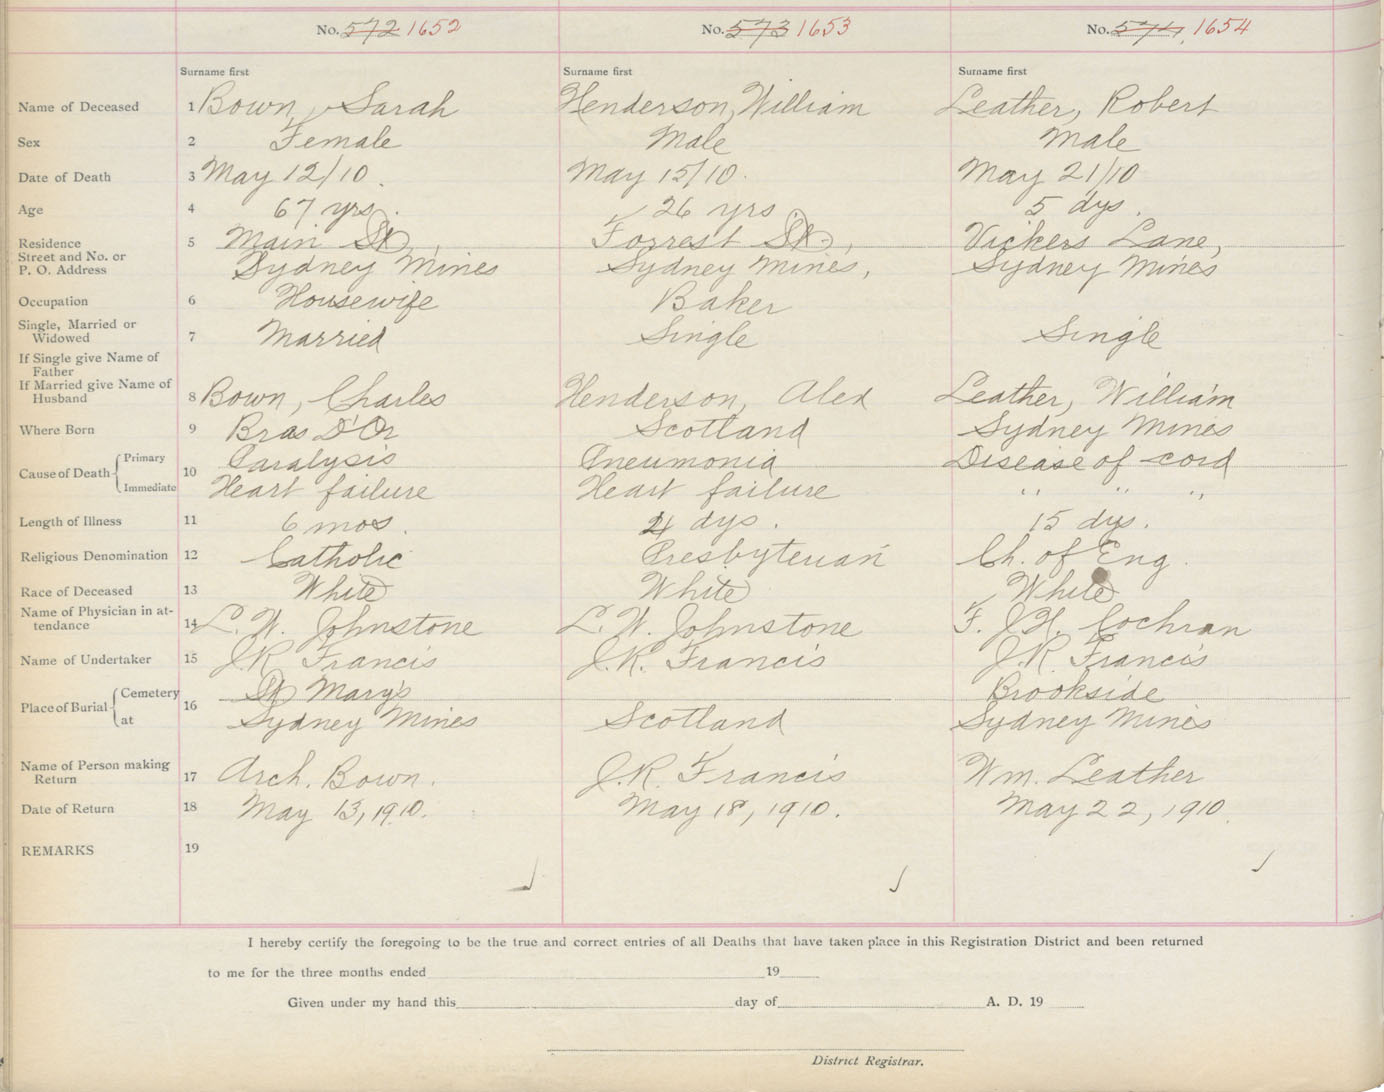 No. 572 1652 No. 573 1653 No. 574 1654
Surname first Surname first Surname first
Name of Deceased 1 Bown, Sarah Henderson, William Leather, Robert
Sex 2 Female Male Male
Date of Death 3 May 12/10. May 15/10. May 21/10
Age 4 67 yrs. 26 yrs 5 dys.
Residence 5 Main St, Forrest St, Vickers Lane,
Street and No. or
P. O. Address Sydney Mines Sydney Mines, Sydney Mines
Occupation 6 Housewife Baker
Single, Married or
Widowed 7 Married Single Single
If Single give Name of
Father
If Married give Name of
Husband 8 Bown, Charles Henderson, Alex Leather, William
Where Born 9 Bras D'Or Scotland Sydney Mines
Cause of Death Primary Paralysis Pneumonia Disease of cord
10
Immediate Heart failure Heart failure " " "
Length of Illness 11 6 mos. dys. 15 dys.
Religious Denomination 12 Catholic Presbyterian Ch. of Eng.
Race of Deceased 13 White White White
Name of Physician in at-
tendance 14 L. W. Johnstone L. W. Johnstone F. J. H. Cochran
Name of Undertaker 15 J.R. Francis J.R. Francis J.R. Francis
Place of Burial Cemetery St Mary's Brookside
16
at Sydney Mines Scotland Sydney Mines
Name of Person making
Return 17 Arch. Bown. J.R. Francis Wm. Leather
Date of Return 18 May 13, 1910. May 18, 1910. May 22, 1910.
REMARKS 19
I hereby certify the foregoing to be the true and correct entries of all Deaths that have taken place in this Registration District and been returned
to me for the three months ended 19
Given under my hand this day of A. D. 19
District Registrar.